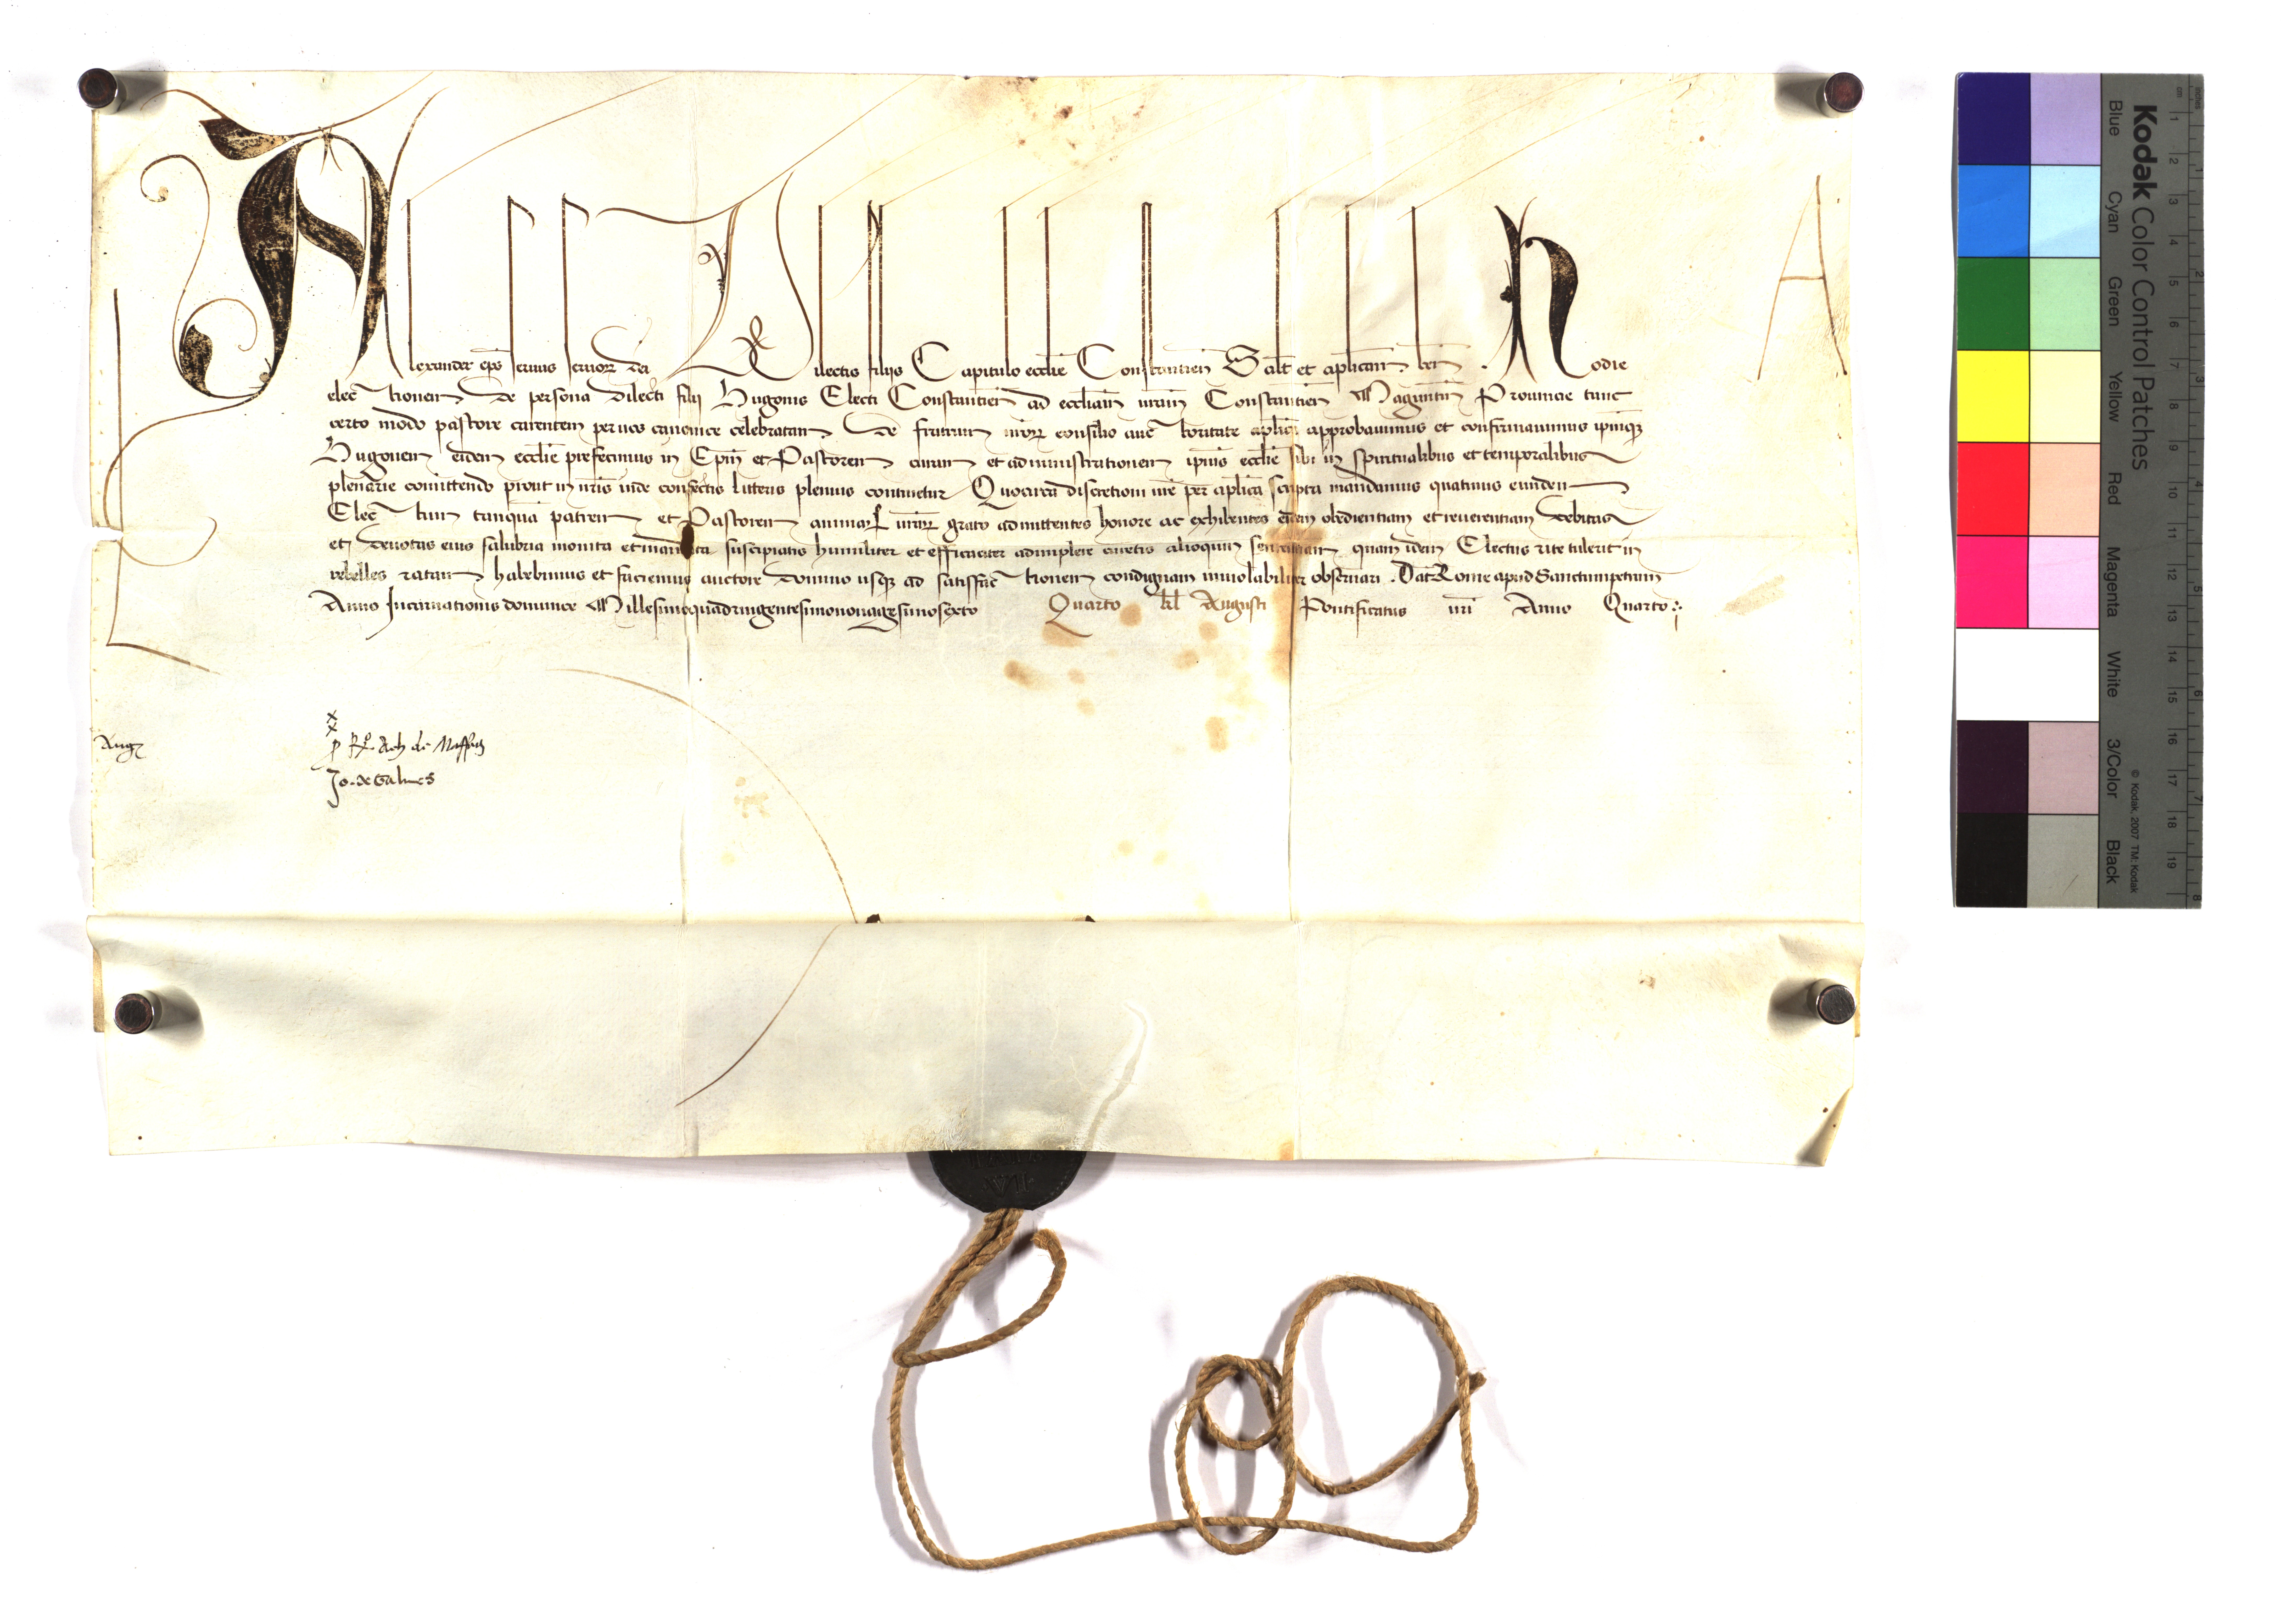 Alexander ep̄s seruus seruoꝝ dei Dilectis filijs Capitulo ecclīe Constantien̄ Salt̄ et aplicam̄ ben̄ . Hodie
elec tionem De persona Dilecti filij Hugonis Electi Constantien̄ ad ecclīam vram̄ Constantien̄ Maguntin̄ Prouincie tunc
certo modo pastore carentem per uos canonice celebratam De fratrum nr̄oꝝ consilio auc toritate aplicā approbauimus et confirmauimus ipm̄qꝫ
Hugonem eidem ecclīe prefecimus in Epm̄ et Pastorem curam et administrationem ipius ecclīe sibi in spiritualibus et temporalibus
plenarie comittendo prout in nr̄is inde confectis litteris plenius continetur Quocirca discretioni vrē per aplicā scripta mandamus quatinus eundem
Elec tum tanquā patrem et Pastorem animaꝝ vrāꝝ grato admittentes honore ac exhibentes eidem obedientiam et reuerentiam debitas
et deuotas eius salubria monita et mandata suscipiatis humiliter et efficaciter adimplere curetis alioquin sententiam quam idem Electus rite tulerit in
rebelles ratam habebimus et faciemus auctore domino usqꝫ ad satisfac tionem condignam inuiolabiliter obseruari . Dat̄ Rome apud Sanctumpetrum
Anno Incarnationis dominice Millesimoquadringentesimononagesimosexto Quarto kl̄ Augusti Pontificatus nr̄i Anno Quarto :
A
Aug
x
x
ꝑ Rꝫ. Ach de Maffeis
Jo. de Galues
Kodak Color Control Patches
Blue Cyan Green Yellow Red Magenta White 3/Color Black
© Kodak, 2007 TM: Kodak
inches 1 2 3 4 5 6 7 8
cm 1 2 3 4 5 6 7 8 9 10 11 12 13 14 15 16 17 18 19